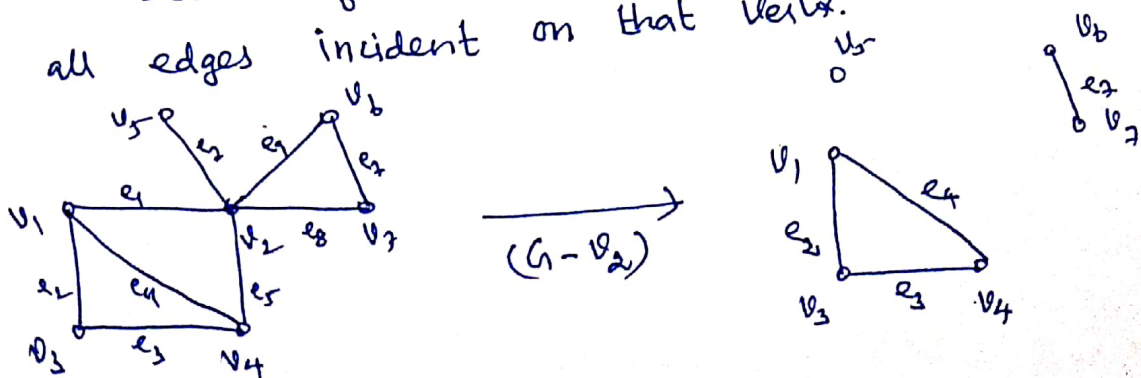 all edges incident on that
v5 v6
e9 e7
e1
v1 v2 e8 v7
e2 e4 e5
e3
v3 v4
(G - v2)
v5
v6
e7
v7
v1
e4
e2
e3
v3 v4